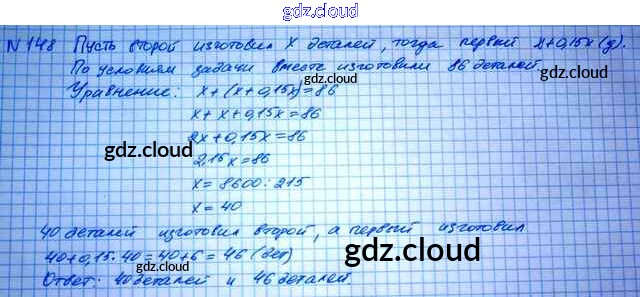 gdz.cloud
N 148 Пусть второй изготовил x деталей, тогда первый x+0,15x (д).
По условиям задачи вместе изготовили 86 деталей
gdz.cloud
Уравнение: x+(x+0,15x)=86
x+x+0,15x=86
gdz.cloud
2x+0,15x=86
gdz.cloud
2,15x=86
x=8600:215
x=40
40 деталей изготовил второй, а первый изготовил
gdz.cloud
40+0,15·40=40+6=46 (дет)
gdz.cloud
Ответ: 40 деталей и 46 деталей.